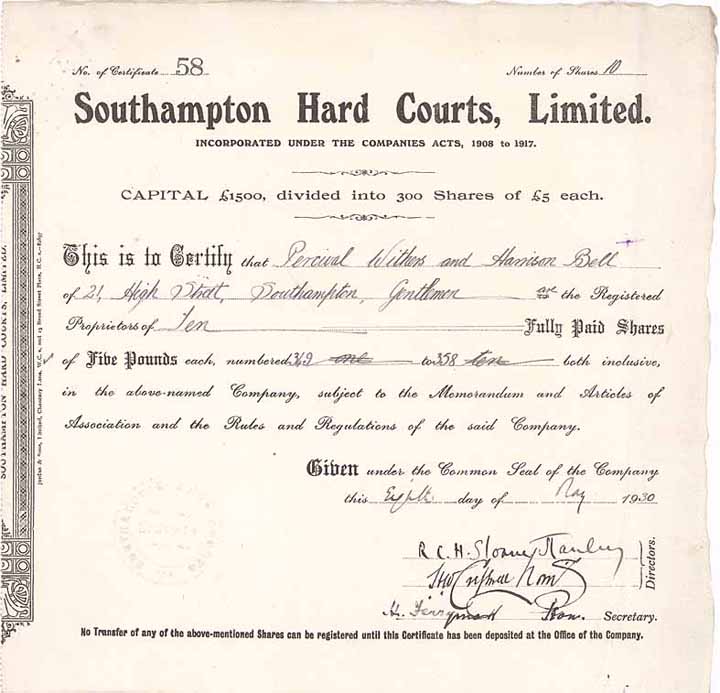 No. of Certificate 58
Number of Shares 10
Southampton Hard Courts, Limited.
INCORPORATED UNDER THE COMPANIES ACTS, 1908 to 1917.
CAPITAL £1500, divided into 300 Shares of £5 each.
This is to Certify that Percival Withers and Harrison Bell
of 21, High Street, Southampton, Gentlemen are the Registered
Proprietors of Ten Fully Paid Shares
of Five Pounds each, numbered 349 one to 358 ten both inclusive,
in the above-named Company, subject to the Memorandum and Articles of
Association and the Rules and Regulations of the said Company.
Given under the Common Seal of the Company
this Eighth day of May 1930
R. C. H. Sloane Stanley
Directors.
Secretary.
No Transfer of any of the above-mentioned Shares can be registered until this Certificate has been deposited at the Office of the Company.
SOUTHAMPTON HARD COURTS, LIMITED.
Jordan & Sons, Limited, Chancery Lane, W.C. 2, and 13 Broad Street Place, E.C. 2